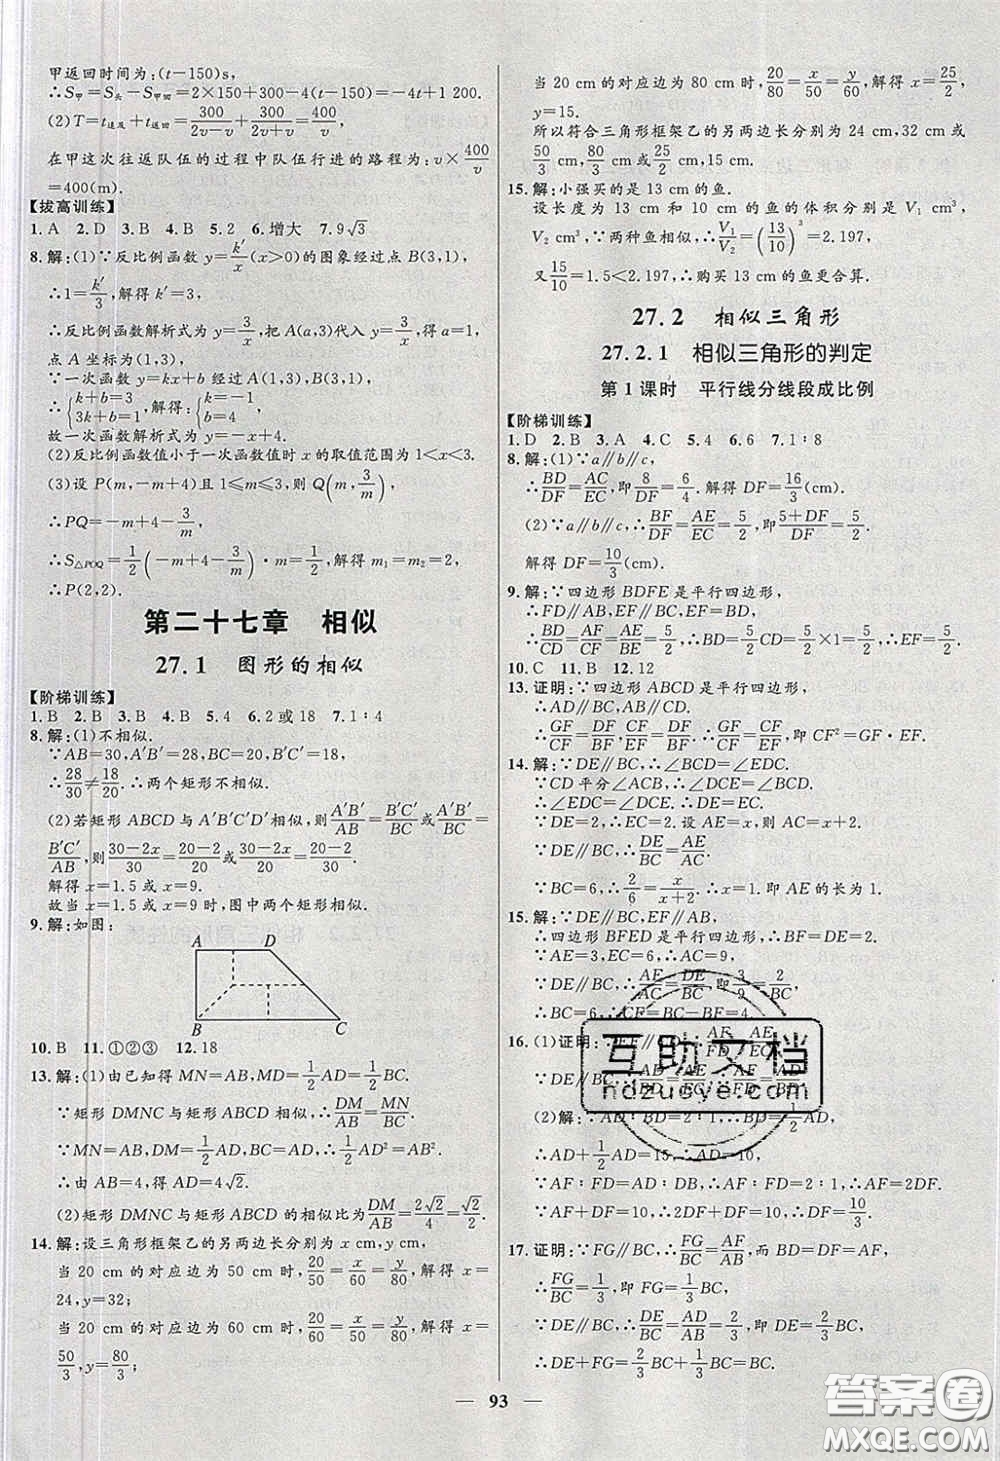 甲返回时间为:(t-150)s,
∴S甲=S头-S甲回=2×150+300-4(t-150)=-4t+1 200.
(2)T=t追及+t返回=400/(2v-v)+400/(2v+v)=400/v,
在甲这次往返队伍的过程中队伍行进的路程为:v×400/v
=400(m).
【拔高训练】
1.A 2.D 3.B 4.B 5.2 6.增大 7.9√3
8.解:(1)∵反比例函数 y=k′/x(x>0)的图象经过点 B(3,1),
∴1=k′/3,解得 k′=3,
∴反比例函数解析式为 y=3/x,把 A(a,3)代入,得 a=1,
点 A 坐标为(1,3),
∵一次函数 y=kx+b 经过 A(1,3),B(3,1),
∴{k+b=3 3k+b=1,解得:{k=-1 b=4,
故一次函数解析式为 y=-x+4.
(2)反比例函数值小于一次函数值时 x 的取值范围为 1<x<3.
(3)设 P(m,-m+4)且 1≤m≤3,则 Q(m,3/m),
∴PQ=-m+4-3/m,
∴S△POQ=1/2(-m+4-3/m)·m=1/2,解得 m₁=m₂=2,
∴P(2,2).
第二十七章 相似
27.1 图形的相似
【阶梯训练】
1.B 2.B 3.B 4.B 5.4 6.2或18 7.1∶4
8.解:(1)不相似.
∵AB=30,A′B′=28,BC=20,B′C′=18,
∴28/30≠18/20.∴两个矩形不相似.
(2)若矩形 ABCD 与 A′B′C′D′相似,则A′B′/AB=B′C′/BC或A′B′/BC=
B′C′/AB,则(30-2x)/30=(20-2)/20或(30-2x)/20=(20-2)/30.
解得 x=1.5 或 x=9.
故当 x=1.5 或 x=9 时,图中两个矩形相似.
9.解:如图:
A D
B C
10.B 11.①②③ 12.18
13.解:(1)由已知得 MN=AB,MD=1/2AD=1/2BC.
∵矩形 DMNC 与矩形 ABCD 相似,∴DM/AB=MN/BC.
∵MN=AB,DM=1/2AD,BC=AD,∴1/2AD²=AB².
∴由 AB=4,得 AD=4√2.
(2)矩形 DMNC 与矩形 ABCD 的相似比为DM/AB=2√2/4=√2/2.
14.解:设三角形框架乙的另两边长分别为 x cm,y cm,
当 20 cm 的对应边为 50 cm 时,20/50=x/60=y/80,解得 x=
24,y=32;
当 20 cm 的对应边为 60 cm 时,20/60=x/50=y/80,解得 x=
50/3,y=80/3;
当 20 cm 的对应边为 80 cm 时,20/80=x/50=y/60,解得 x=25/2,
y=15.
所以符合三角形框架乙的另两边长分别为 24 cm,32 cm 或
50/3 cm,80/3 cm 或25/2 cm,15 cm.
15.解:小强买的是 13 cm 的鱼.
设长度为 13 cm 和 10 cm 的鱼的体积分别是 V₁ cm³,
V₂ cm³,∵两种鱼相似,∴V₁/V₂=(13/10)³=2.197,
又15/10=1.5<2.197,∴购买 13 cm 的鱼更合算.
27.2 相似三角形
27.2.1 相似三角形的判定
第1课时 平行线分线段成比例
【阶梯训练】
1.D 2.B 3.A 4.C 5.4 6.6 7.1∶8
8.解:(1)∵a∥b∥c,
∴BD/DF=AC/EC,即8/DF=6/4.解得 DF=16/3(cm).
(2)∵a∥b∥c,∴BF/DF=AE/EC=5/2,即(5+DF)/DF=5/2.
解得 DF=10/3(cm).
9.解:∵四边形 BDFE 是平行四边形,
∴FD∥AB,EF∥BC,EF=BD,
∴BD/CD=AF/CF=AE/BE=5/2,∴BD=5/2CD=5/2×1=5/2,∴EF=5/2.
10.C 11.B 12.12
13.证明:∵四边形 ABCD 是平行四边形,
∴AD∥BC,AB∥CD.
∴GF/CF=DF/BF,CF/EF=DF/BF.∴GF/CF=CF/EF,即 CF²=GF·EF.
14.解:∵DE∥BC,∴∠BCD=∠EDC.
∵CD 平分∠ACB,∴∠BCD=∠DCE.
∴∠EDC=∠DCE.∴DE=EC.
∵DE=2,∴EC=2.设 AE=x,则 AC=x+2.
∵DE∥BC,∴DE/BC=AE/AC.
∵BC=6,∴2/6=x/(x+2).∴x=1.即 AE 的长为 1.
15.解:∵DE∥BC,EF∥AB,
∴四边形 BFED 是平行四边形,∴BF=DE=2.
∵AE=3,CE=6,∴AC=9.
∵DE∥BC,∴AE/AC=DE/BC,即3/9=2/BC.
∴BC=6,∴CF=BC-BF=4.
16.(1)证明:
(2)解:∵AD∶BD=2∶1,∴BD=1/2AD,
∴AD+1/2AD=15,∴AD=10,
∵AF∶DF=AD∶DB=2∶1,∴AF=2DF.
∵AF+DF=10,∴2DF+DF=10,∴DF=10/3.
17.证明:∵FG∥BC,∴FG/BC=AF/AB,而 BD=DF=AF,
∴FG/BC=1/3,即 FG=1/3BC,
∵DE∥BC,∴DE/BC=AD/AB=2/3,即 DE=2/3BC,
∴DE+FG=2/3BC+1/3BC=BC.
93
互助文档
hdzuoye.com
答案圈
MXQE.COM